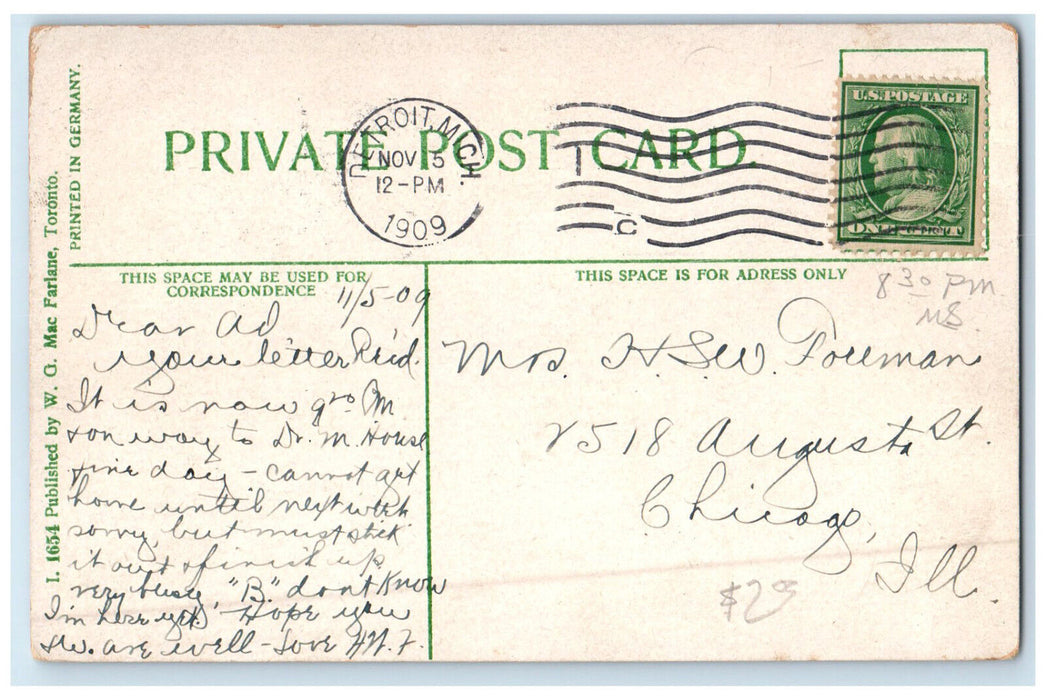 PRIVATE POST CARD
DETROIT, MICH.
NOV 5
12-PM
1909
C
U.S. POSTAGE
THIS SPACE MAY BE USED FOR
CORRESPONDENCE
THIS SPACE IS FOR ADRESS ONLY
I. 1654 Published by W. G. Mac Farlane, Toronto.
PRINTED IN GERMANY.
11/5-09
Dear Ad
your letter Re'd.
It is now 9 PM
on way to Dr. M. House
fine day - cannot get
home until next week
sorry, but must stick
it out & finish up
very busy "B." dont Know
I'm here yet. Hope you
are well - Love
8 30 PM.
Mrs. H. S. W. Foreman
2518 Augusta St.
Chicago,
Ill.
$2